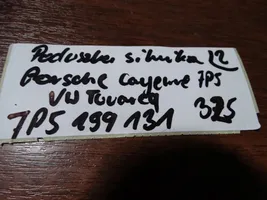 Poduszka silnika L2
Porsche Cayenne 7P5
VW Touareg 325
7P5 199 131